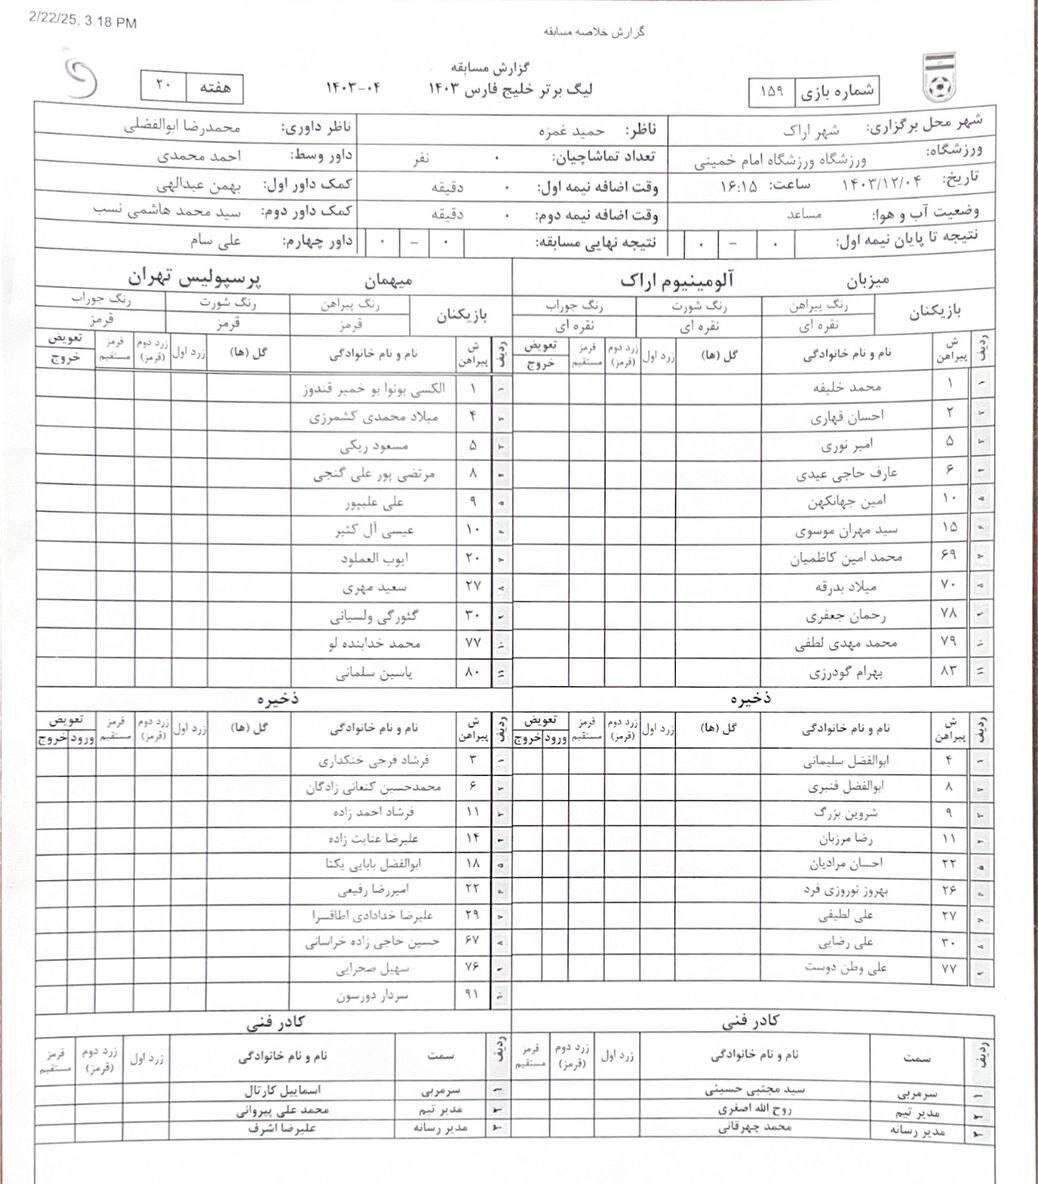 2/22/25, 3:18 PM
گزارش خلاصه مسابقه
گزارش مسابقه
شماره بازی ۱۵۹ لیگ برتر خلیج فارس ۱۴۰۳ ۰۴-۱۴۰۳ هفته ۲۰
شهر محل برگزاری: شهر اراک ناظر: حمید غمزه ناظر داوری: محمدرضا ابوالفضلی
ورزشگاه: ورزشگاه ورزشگاه امام خمینی تعداد تماشاچیان: ۰ نفر داور وسط: احمد محمدی
تاریخ: ۱۴۰۳/۱۲/۰۴ ساعت: ۱۶:۱۵ وقت اضافه نیمه اول: ۰ دقیقه کمک داور اول: بهمن عبدالهی
وضعیت آب و هوا: مساعد وقت اضافه نیمه دوم: ۰ دقیقه کمک داور دوم: سید محمد هاشمی نسب
نتیجه تا پایان نیمه اول: ۰ - ۰ نتیجه نهایی مسابقه: ۰ - ۰ داور چهارم: علی سام
میزبان آلومینیوم اراک میهمان پرسپولیس تهران
بازیکنان رنگ پیراهن رنگ شورت رنگ جوراب بازیکنان رنگ پیراهن رنگ شورت رنگ جوراب
نقره ای نقره ای نقره ای قرمز قرمز قرمز
ردیف ش پیراهن نام و نام خانوادگی گل (ها) زرد اول زرد دوم (قرمز) قرمز مستقیم تعویض خروج ردیف ش پیراهن نام و نام خانوادگی گل (ها) زرد اول زرد دوم (قرمز) قرمز مستقیم تعویض خروج
۱ ۱ محمد خلیفه ۱ ۱ الکسی بونوا بو خمیر قندوز
۲ ۲ احسان قهاری ۲ ۴ میلاد محمدی کشمرزی
۳ ۵ امیر نوری ۳ ۵ مسعود ریکی
۴ ۶ عارف حاجی عیدی ۴ ۸ مرتضی پور علی گنجی
۵ ۱۰ امین جهانکهن ۵ ۹ علی علیپور
۶ ۱۵ سید مهران موسوی ۶ ۱۰ عیسی آل کثیر
۷ ۶۹ محمد امین کاظمیان ۷ ۲۰ ایوب العملود
۸ ۷۰ میلاد بدرقه ۸ ۲۷ سعید مهری
۹ ۷۸ رحمان جعفری ۹ ۳۰ گئورگی ولسیانی
۱۰ ۷۹ محمد مهدی لطفی ۱۰ ۷۷ محمد خدابنده لو
۱۱ ۸۳ بهرام گودرزی ۱۱ ۸۰ یاسین سلمانی
ذخیره ذخیره
ردیف ش پیراهن نام و نام خانوادگی گل (ها) زرد اول زرد دوم (قرمز) قرمز مستقیم تعویض ورود خروج ردیف ش پیراهن نام و نام خانوادگی گل (ها) زرد اول زرد دوم (قرمز) قرمز مستقیم تعویض ورود خروج
۱ ۴ ابوالفضل سلیمانی ۱ ۳ فرشاد فرجی خنکداری
۲ ۸ ابوالفضل قنبری ۲ ۶ محمدحسین کنعانی زادگان
۳ ۹ شروین بزرگ ۳ ۱۱ فرشاد احمد زاده
۴ ۱۱ رضا مرزبان ۴ ۱۴ علیرضا عنایت زاده
۵ ۲۲ احسان مرادیان ۵ ۱۸ ابوالفضل بابایی یکتا
۶ ۲۶ بهروز نوروزی فرد ۶ ۲۲ امیررضا رفیعی
۷ ۲۷ علی لطیفی ۷ ۲۹ علیرضا خدادادی اطاقسرا
۸ ۳۰ علی رضایی ۸ ۶۷ حسین حاجی زاده خراسانی
۹ ۷۷ علی وطن دوست ۹ ۷۶ سهیل صحرایی
۱۰ ۹۱ سردار دورسون
کادر فنی کادر فنی
ردیف سمت نام و نام خانوادگی زرد اول زرد دوم (قرمز) قرمز مستقیم ردیف سمت نام و نام خانوادگی زرد اول زرد دوم (قرمز) قرمز مستقیم
۱ سرمربی سید مجتبی حسینی ۱ سرمربی اسماییل کارتال
۲ مدیر تیم روح الله اصغری ۲ مدیر تیم محمد علی پیروانی
۳ مدیر رسانه محمد چهرقانی ۳ مدیر رسانه علیرضا اشرف